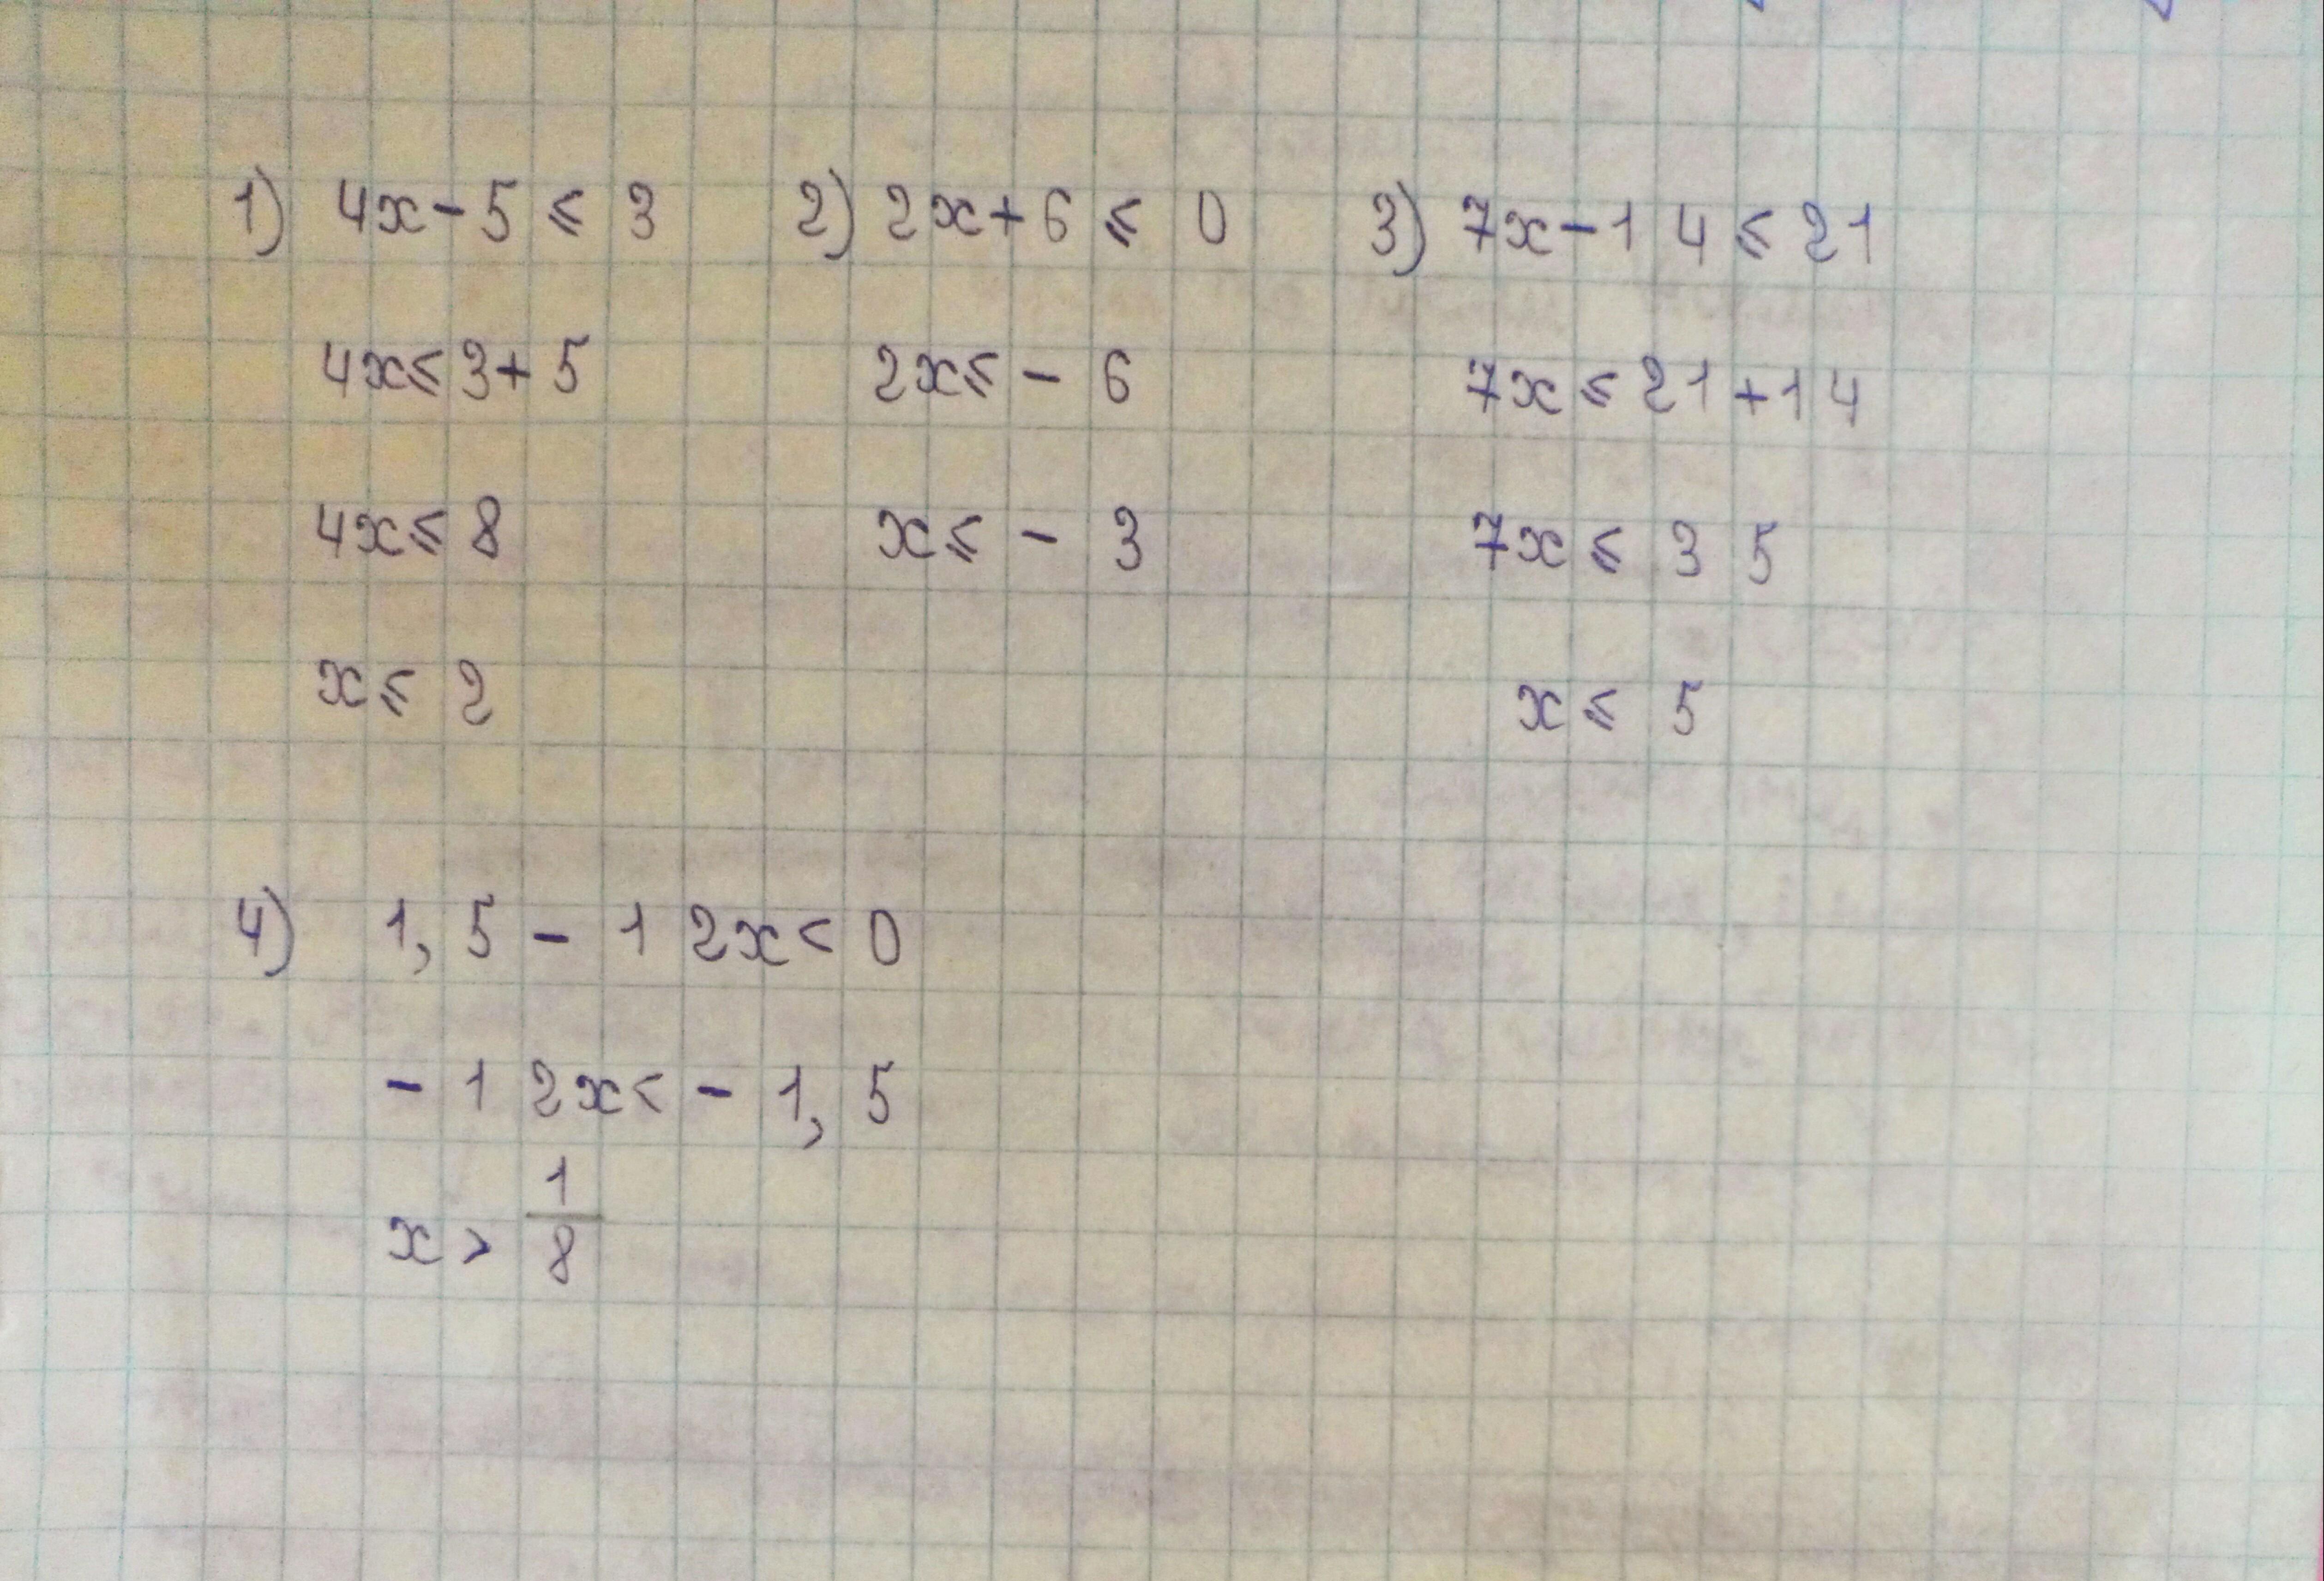 1) 4x - 5 ⩽ 3
4x ⩽ 3 + 5
4x ⩽ 8
x ⩽ 2
2) 2x + 6 ⩽ 0
2x ⩽ - 6
x ⩽ - 3
3) 7x - 14 ⩽ 21
7x ⩽ 21 + 14
7x ⩽ 35
x ⩽ 5
4) 1,5 - 12x < 0
- 12x < - 1,5
x > 1/8